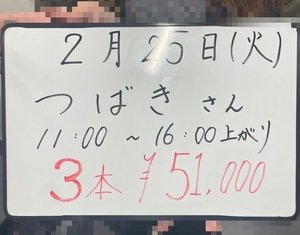 2月25日(火)
つばきさん
11:00～16:00上がり
3本 ¥51.000